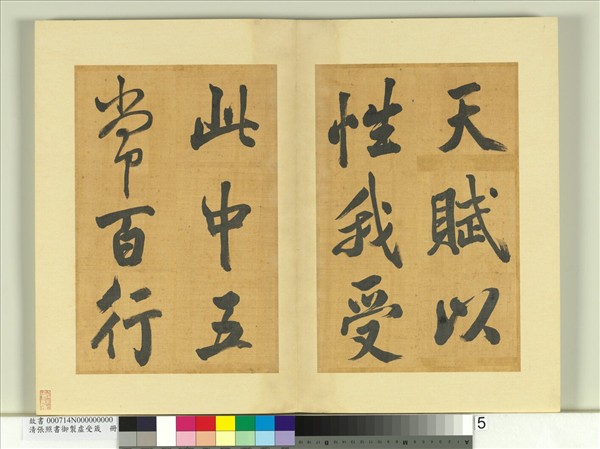 天賦以
性我受
此中五
常百行
故書 000714N000000000
清張照書御製虛受箴 冊
5